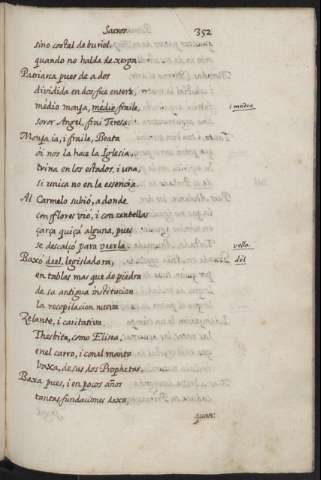 Sacros 352
sino costal de buriel,
quando no halda de xerga
Patriarca pues de a dos
dividida en dos, fue entera
medio monja, medio fraile, i medio
soror Angel, frai Teresa.
Monja ia, i fraile, Beata
oi nos la hace la Iglesia,
trina en los estados, i una,
si unica no en la essencia.
Al Carmelo subió, a donde
con flores vió, i con centellas
çarça quiça alguna, pues
se descalçó para verla. vella
Baxó del, legisladora, dél
en tablas mas que de piedra
de su antigua institucion
la recopilacion nueva
Zelante, i caritativa,
Thesbita, como Elisea,
en el carro, i con el manto
baxa, de sus dos Prophetas.
Baxa pues, i en pocos años
tantas fundaciones dexa,
quan: